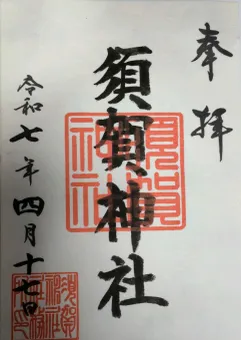 奉拝
須賀神社
令和七年四月十七日
須賀神社